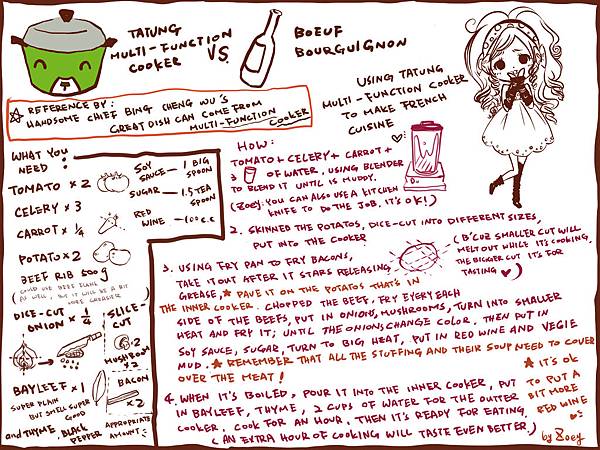 TATUNG
MULTI-FUNCTION
COOKER
VS.
BOEUF
BOURGUIGNON
USING TATUNG
MULTI-FUNCTION COOKER
TO MAKE FRENCH
CUISINE
☆ REFERENCE BY:
HANDSOME CHIEF BING CHENG WU'S
GREAT DISH CAN COME FROM
MULTI-FUNCTION COOKER
WHAT YOU
NEED:
TOMATO × 2
CELERY × 3
CARROT × 1/4
POTATO × 2
BEEF RIB 500g
(COULD USE BEEF FLANK
AS WELL, BUT IT WILL BE A BIT
MORE GREASIER)
SOY
SAUCE — 1 BIG
SPOON
SUGAR — 1.5 TEA
SPOON
RED
WINE — 100 c.c
DICE-CUT
ONION × 1/4
SLICE-
CUT
MUSHROOM
× 2
BAYLEEF × 1
SUPER PLAIN
BUT SMELL SUPER
GOOD
BACON
× 2
and THYME, BLACK
PEPPER
APPROPRIATE
AMOUNT
HOW:
TOMATO + CELERY + CARROT +
3 OF WATER. USING BLENDER
TO BLEND IT UNTIL IS MUDDY.
(Zoey: YOU CAN ALSO USE A KITCHEN
KNIFE TO DO THE JOB. IT'S OK!)
2. SKINNED THE POTATOS, DICE-CUT INTO DIFFERENT SIZES,
PUT INTO THE COOKER
(B'CUZ SMALLER CUT WILL
MELT OUT WHILE IT'S COOKING.
THE BIGGER CUT IT'S FOR
TASTING ♥)
3. USING FRY PAN TO FRY BACONS,
TAKE IT OUT AFTER IT STARS RELEASING
GREASE, ★ PAVE IT ON THE POTATOS THAT'S IN
THE INNER COOKER. CHOPPED THE BEEF, FRY EVERY EACH
SIDE OF THE BEEFS, PUT IN ONIONS, MUSHROOMS, TURN INTO SMALLER
HEAT AND FRY IT; UNTIL THE ONIONS CHANGE COLOR. THEN PUT IN
SOY SAUCE, SUGAR, TURN TO BIG HEAT, PUT IN RED WINE AND VEGIE
MUD. ★ REMEMBER THAT ALL THE STUFFING AND THEIR SOUP NEED TO COVER
OVER THE MEAT!
★ IT'S OK
TO PUT A
BIT MORE
RED WINE
4. WHEN IT'S BOILED, POUR IT INTO THE INNER COOKER, PUT
IN BAYLEEF, THYME, 2 CUPS OF WATER FOR THE OUTTER
COOKER. COOK FOR AN HOUR. THEN IT'S READY FOR EATING.
(AN EXTRA HOUR OF COOKING WILL TASTE EVEN BETTER.)
by Zoey